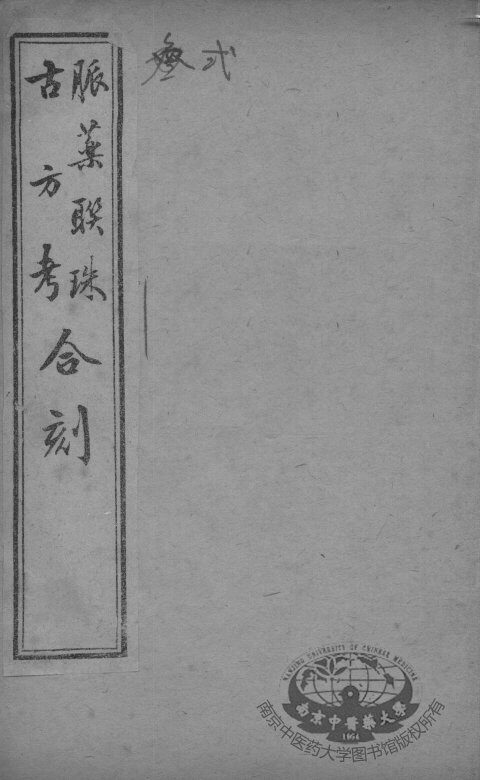 脈藥聯珠
古方考
合刻
NANJING UNIVERSITY OF CHINESE MEDICINE
南京中醫藥大學
1954
南京中医药大学图书馆版权所有